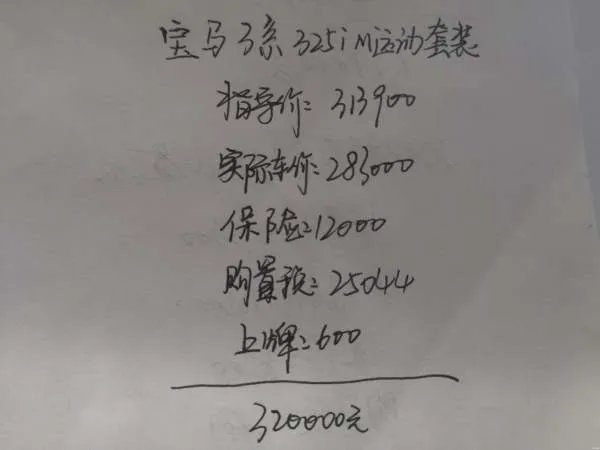 宝马3系325i M运动套装
指导价:313900
实际车价:283000
保险:12000
购置税:25044
上牌:600
320000元